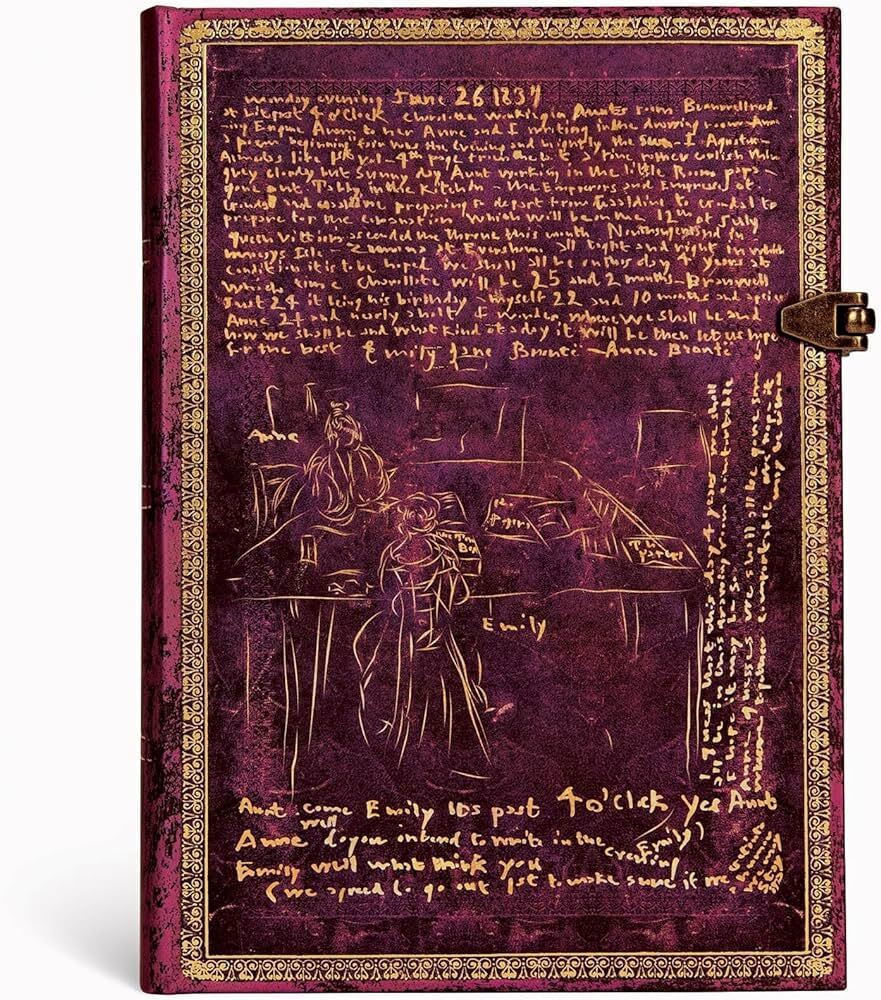 monday evening June 26 1837
4 o'clock Charlotte working in Aunts room Branwell
Eugene Aram to her Anne and I writing in the drawing room
a poem beginning fair was the evening and brightly the Sun - I Agustus
Almedas life 1st vol - 4th page from the last a fine rather coolish thin
grey cloudy but Sunny day Aunt working in the little Room papa
gone out. Tabby in the Kitchen - the Emperors and Empresses of
Gondal and Gaaldine preparing to depart from Gaaldine to Gondal to
prepare for the coronation which will be on the 12th of July
Queen Vittoria ascended the throne this month Northangerland in
Monceys Isle - Zamorna at Eversham. all tight and right in which
condition it is to be hoped we shall all be on this day 4 years at
which time Charlotte will be 25 and 2 months - Branwell
just 24 it being his birthday - myself 22 and 10 months and a piece
Anne 21 and nearly a half I wonder where we shall be and
how we shall be and what kind of a day it will be then let us hope
for the best
Emily Jane Brontë - Anne Brontë
Anne
Emily
The
papers
I guess that this day 4 years we shall
all be in this drawing room comfortable
I hope it may be so
Anne guesses we shall all be gone somewhere
comfortable
Aunt. come Emily Its past 4 o'clock
Yes Aunt
Anne well do you intend to write in the evening
Emily well what think you
(we agreed to go out 1st to make sure if we